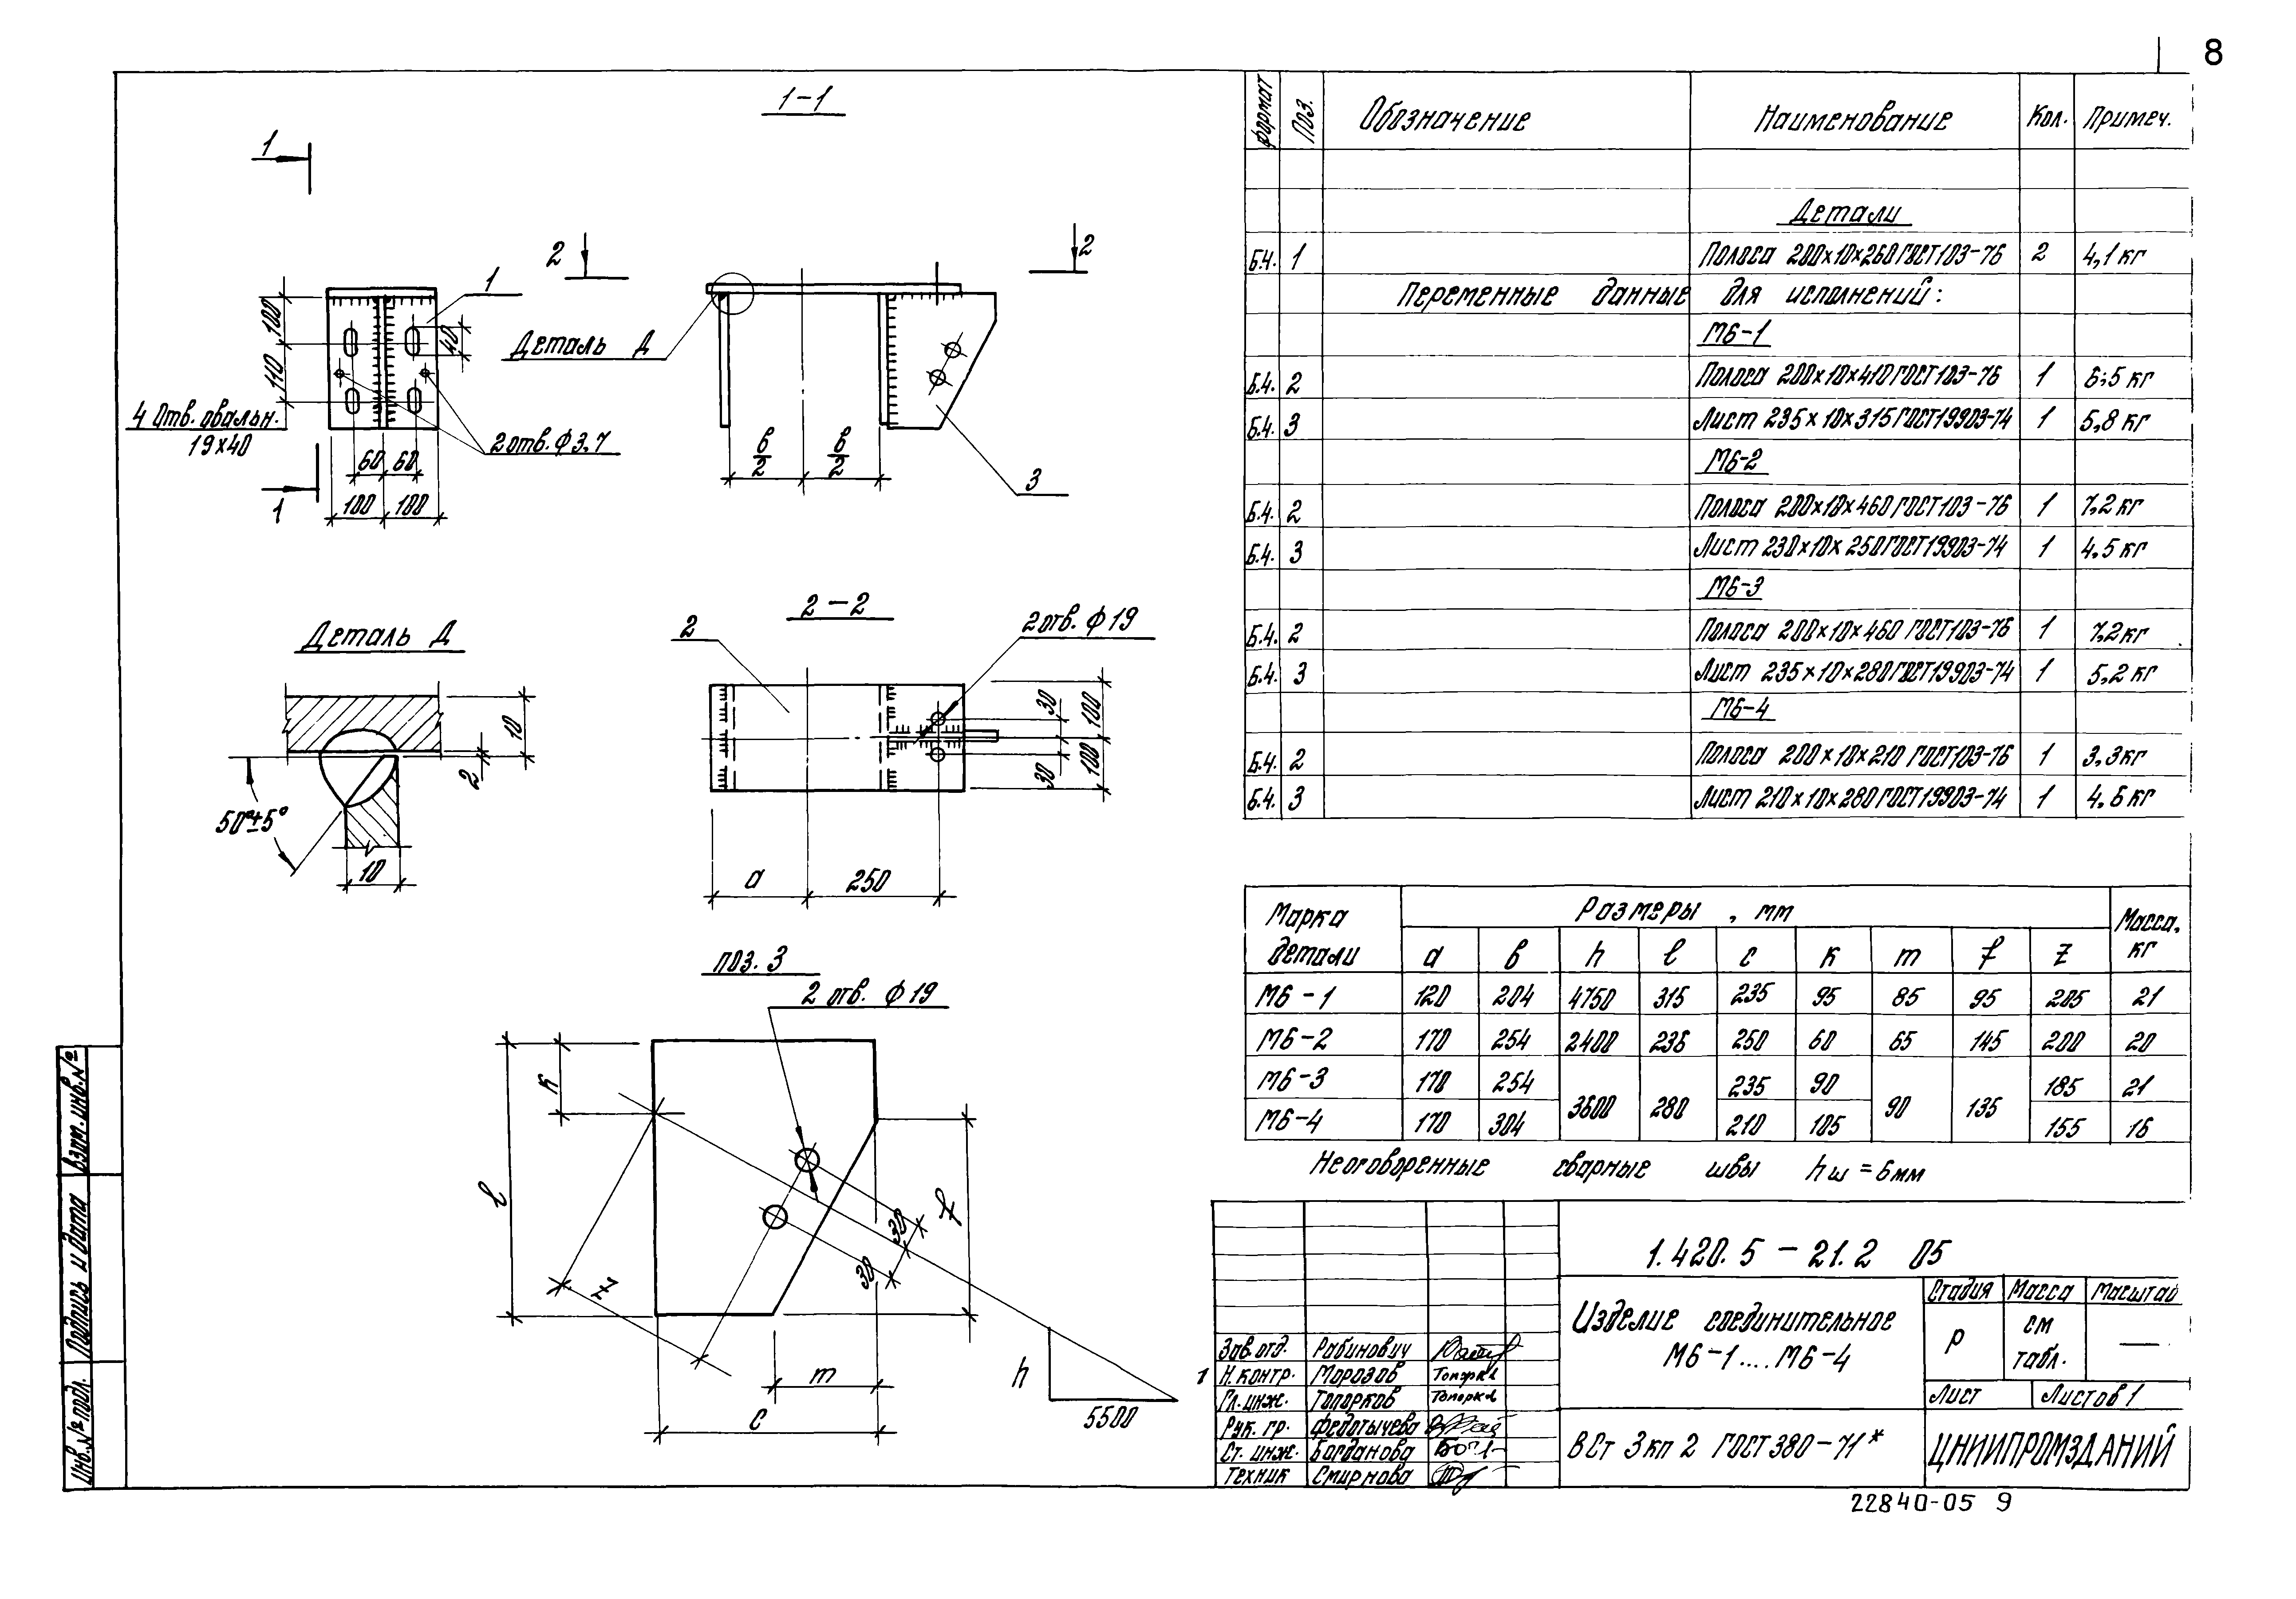 8
1-1
1
2
2
1
100
110
40
Деталь Д
4 отв. овальн.
19×40
2 отв. ф 3,7
60 60
100 100
1
в/2 в/2
3
Деталь Д
10
2
50°±5°
10
2-2
2
2 отв. ф 19
30
30
100
100
а
250
поз. 3
2 отв. ф 19
к
l
z
f
30
30
m
c
h
5500
Формат Поз. Обозначение Наименование Кол. Примеч.
Детали
Б.4. 1 Полоса 200×10×260 ГОСТ 103-76 2 4,1 кг
Переменные данные для исполнений:
М6-1
Б.4. 2 Полоса 200×10×410 ГОСТ 103-76 1 6,5 кг
Б.4. 3 Лист 235×10×315 ГОСТ 19903-74 1 5,8 кг
М6-2
Б.4. 2 Полоса 200×10×460 ГОСТ 103-76 1 7,2 кг
Б.4. 3 Лист 230×10×250 ГОСТ 19903-74 1 4,5 кг
М6-3
Б.4. 2 Полоса 200×10×460 ГОСТ 103-76 1 7,2 кг
Б.4. 3 Лист 235×10×280 ГОСТ 19903-74 1 5,2 кг
М6-4
Б.4. 2 Полоса 200×10×210 ГОСТ 103-76 1 3,3 кг
Б.4. 3 Лист 210×10×280 ГОСТ 19903-74 1 4,6 кг
Марка детали Размеры, мм Масса, кг
а в h l c к m f z
М6-1 120 204 4750 315 235 95 85 95 205 21
М6-2 170 254 2400 236 250 60 65 145 200 20
М6-3 170 254 3600 280 235 90 90 135 185 21
М6-4 170 304 210 105 155 16
Неоговоренные сварные швы hш = 6 мм
1.420.5-21.2 05
Изделие соединительное
М6-1....М6-4
Стадия Масса Масштаб
Р см табл. —
Лист Листов 1
ВСт 3 кп 2 ГОСТ 380-71*
ЦНИИПРОМЗДАНИЙ
Зав. отд. Рабинович
1 Н. контр. Морозов
Гл. инж. Топорков
Рук. гр. Федотычева
Ст. инж. Богданова
Техник Смирнова
Взам. инв. №
Подпись и дата
Инв. № подл.
22840-05 9